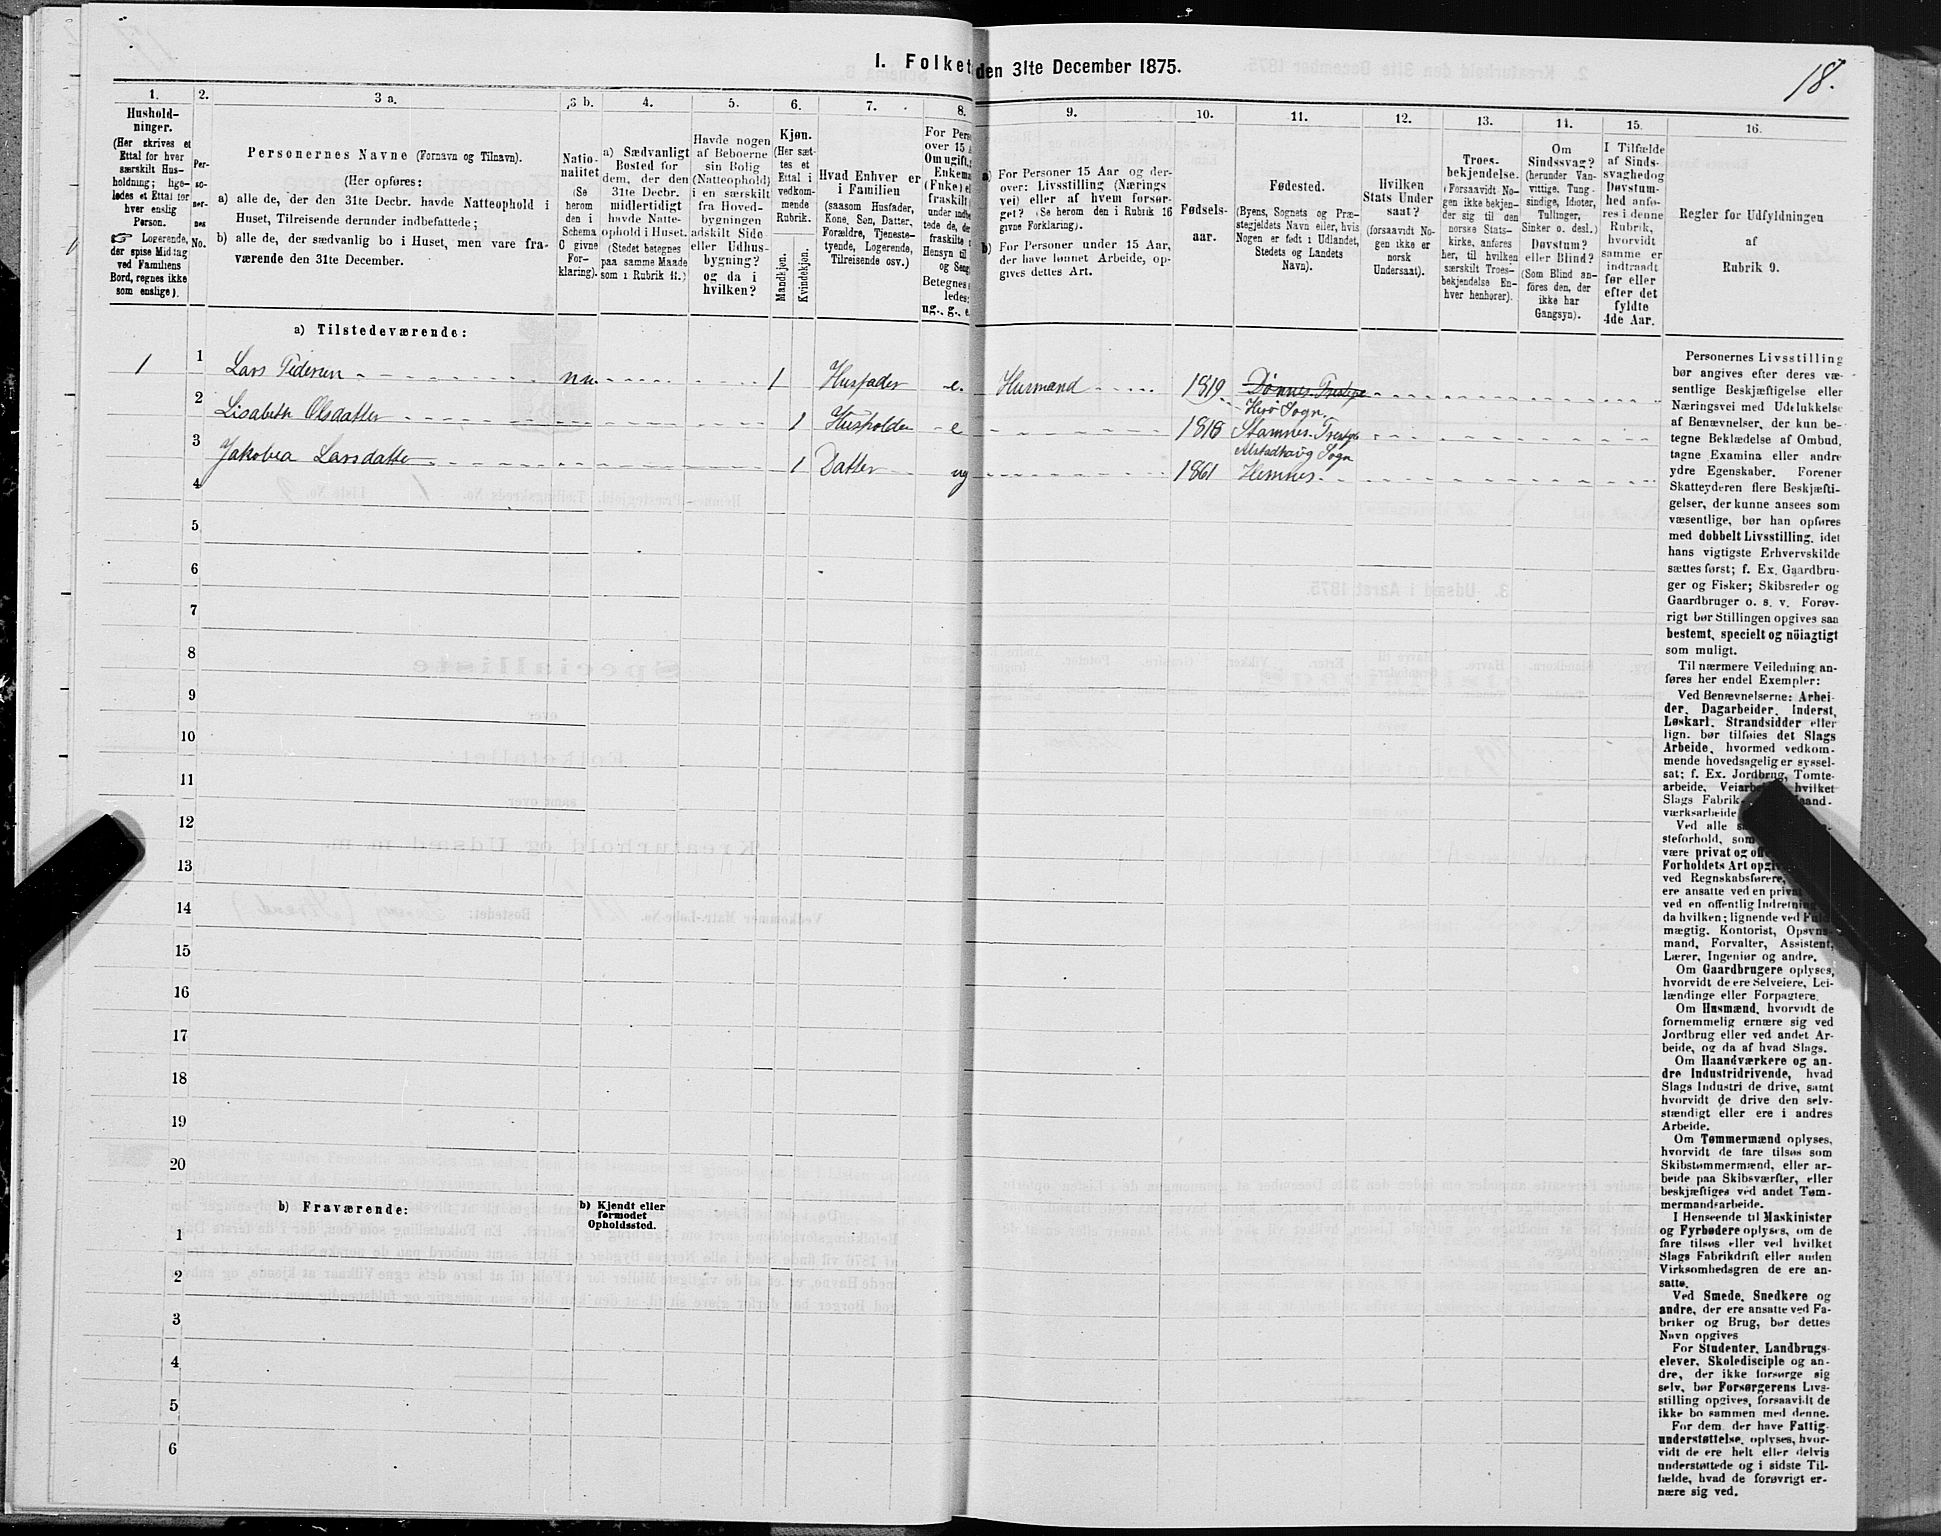 1. Folket den 31te December 1875.
18.
1.
Hushold-
ninger.
(Her skrives et
Ettal for hver
særskilt Hus-
holdning; lige-
ledes et Ettal for
hver enslig
Person.
☞ Logerende,
der spise Middag
ved Familiens
Bord, regnes ikke
som enslige).
2.
Per-
so-
ner-
nes
No.
3 a.
Personernes Navne (Fornavn og Tilnavn).
(Her opføres:
a) alle de, der den 31te Decbr. havde Natteophold i
Huset, Tilreisende derunder indbefattede;
b) alle de, der sædvanlig bo i Huset, men vare fra-
værende den 31te December.
3 b.
Natio-
nalitet
(Se
herom
den i
Schema
C givne
For-
klaring).
4.
a) Sædvanligt
Bosted for
dem, der den
31te Decbr.
midlertidigt
havde Natte-
ophold i Huset.
(Stedet betegnes
paa samme Maade
som i Rubrik 11.)
5.
Havde nogen
af Beboerne
sin Bolig
(Natteophold)
i en særskilt
fra Hoved-
bygningen
adskilt Side-
eller Udhus-
bygning?
og da i
hvilken?
6.
Kjøn.
(Her sæt-
tes et
Ettal i
vedkom-
mende
Rubrik.
Mandkjøn.
Kvindekjøn.
7.
Hvad Enhver er
i Familien
(saasom Husfader,
Kone, Søn, Datter,
Forældre, Tjeneste-
tyende, Logerende,
Tilreisende osv.)
8.
For Pers
over 15 A
Om ugift,
Enkema
(Fnke) e
fraskilt
under indbe
tede de, der
fraskilte
Hensyn til
og Seng
Betegnes
ledes:
ug., g., e.
9.
a) For Personer 15 Aar og der-
over: Livsstilling (Nærings
vei) eller af hvem forsør-
get? (Se herom den i Rubrik 16
givne Forklaring).
b) For Personer under 15 Aar,
der have lønnet Arbeide, op-
gives dettes Art.
10.
Fødsels-
aar.
11.
Fødested.
(Byens, Sognets og Præ-
stegjeldets Navn eller, hvis
Nogen er født i Udlandet,
Stedets og Landets
Navn).
12.
Hvilken
Stats Under
saat?
(forsaavidt No-
gen ikke er
norsk
Undersaat).
13.
Troes-
bekjendelse.
(Forsaavidt No-
gen ikke bekjen-
der sig til den
norske Stats-
kirke, anføres
her, til hvilken
særskilt Troes-
bekjendelse En-
hver henhører).
14.
Om
Sindssvag?
(herunder Van-
vittige, Tung-
sindige, Idioter,
Tullinger,
Sinker o. desl.)
Døvstum?
eller Blind?
(Som Blind an-
føres den, der
ikke har
Gangsyn).
15.
I Tilfælde
af Sinds-
svaghed og
Døvstum-
hed anfø-
res i denne
Rubrik,
hvorvidt
samme er
indtraadt
før eller
efter det
fyldte
4de Aar.
16.
Regler for Udfyldningen
af
Rubrik 9.
a) Tilstedeværende:
1 1 Lars Pedersen nn. 1 Husfader e. Husmand 1819. Dönnes Prestgj
Herö Sogn.
2 Lisabeth Olsdatter 1 Husholder e 1818 Stamnes Prestgj
Alstadhaug Sogn
3 Jakobea Larsdatter 1 Datter ug 1861 Hemnes.
4
5
6
7
8
9
10
11
12
13
14
15
16
17
18
19
20
b) Fraværende:
b) Kjendt eller
formodet
Opholdssted.
1
2
3
4
5
6
Personernes Livsstilling
bør angives efter deres væ-
sentlige Beskjæftigelse eller
Næringsvei med Udelukkelse
af Benævnelser, der kun be-
tegne Beklædelse af Ombud,
tagne Examina eller andre
ydre Egenskaber. Forener
Skatteyderen flere Beskjæfti-
gelser, der kunne ansees som
væsentlige, bør han opføres
med dobbelt Livsstilling, idet
hans vigtigste Erhvervskilde
sættes først; f. Ex. Gaardbru-
ger og Fisker; Skibsreder og
Gaardbruger o. s. v. Forøv-
rigt bør Stillingen opgives saa
bestemt, specielt og nöiagtigt
som muligt.
Til nærmere Veiledning an-
føres her endel Exempler:
Ved Benævnelserne: Arbei-
der, Dagarbeider, Inderst,
Løskarl, Strandsidder eller
lign. bør tilføies det Slags
Arbeide, hvormed vedkom-
mende hovedsagelig er syssel-
sat; f. Ex. Jordbrug, Tomte-
arbeide, Veiarbei hvilket
Slags Fabrik- aand-
værksarbeide
Ved alle s
steforhold, som
være privat og off
Forholdets Art opgi
ved Regnskabsførere,
ere ansatte ved en privat
ved en offentlig Indretning
da hvilken; lignende ved Fuld-
mægtig, Kontorist, Opsyns-
mand, Forvalter, Assistent,
Lærer, Ingeniør og andre.
Om Gaardbrugere oplyses,
hvorvidt de ere Selveiere, Lei-
lændinge eller Forpagtere.
Om Husmænd, hvorvidt de
fornemmelig ernære sig ved
Jordbrug eller ved andet Ar-
beide, og da af hvad Slags.
Om Haandværkere og an-
dre Industridrivende, hvad
Slags Industri de drive, samt
hvorvidt de drive den selv-
stændigt eller ere i andres
Arbeide.
Om Tømmermænd oplyses,
hvorvidt de fare tilsøs som
Skibstømmermænd, eller ar-
beide paa Skibsværfter, eller
beskjæftiges ved andet Tøm-
mermandsarbeide.
I Henseende til Maskinister
og Fyrbødere oplyses, om de
fare tilsøs eller ved hvilket
Slags Fabrikdrift eller anden
Virksomhedsgren de ere an-
satte.
Ved Smede, Snedkere og
andre, der ere ansatte ved Fa-
briker og Brug, bør dettes
Navn opgives
For Studenter, Landbrugs-
elever, Skoledisciple og an-
dre, der ikke forsørge sig
selv, bør Forsørgerens Livs-
stilling opgives, forsaavidt de
ikke bo sammen med denne.
For dem, der have Fattig-
understøttelse, oplyses, hvor-
vidt de ere helt eller delvis
understøttede og i sidste Til-
fælde, hvad de forøvrigt er-
nære sig ved.